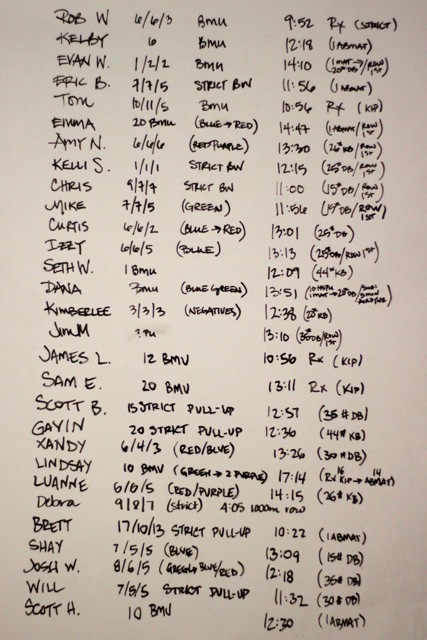 ROB W 6/6/3 BMU 9:52 RX (STRICT)
KELBY 6 BMU 12:18 (1 ABMAT)
EVAN W. 1/2/2 BMU 14:10 (1 MAT→/ROW 20# DB's 1ST)
ERIC B. 7/7/5 STRICT BW 11:56 (1 ABMAT)
TOM 10/11/5 BMU 10:56 RX (KIP)
EMMA 20 BMU (BLUE→RED) 14:47 (1ABMAT/ROW 1ST)
AMY N. 6/6/6 (RED/PURPLE) 13:30 (26# KB/ROW 1ST)
KELLI S. 1/1/1 STRICT BW 12:15 (25# DB/ROW 1ST)
CHRIS 9/7/7 STRICT BW 11:00 (15# DB/ROW 1ST)
MIKE 7/7/5 (GREEN) 11:56 (15# DB/ROW 1ST)
CURTIS 6/6/2 (BLUE→RED) 13:01 (25# DB)
IZZY 6/6/5 (BLUE) 13:13 (25# DB/ROW 1ST)
SETH W. 1 BMU 12:09 (44# KB)
DANA 3MU (BLUE GREEN) 13:51 1 MAT→20# DB
KIMBERLEE 3/3/3 (NEGATIVES) 12:38 (26# KB)
JIM M ? PU 13:10 (35# DB/ROW 1ST)
JAMES L. 12 BMU 10:56 RX (KIP)
SAM E. 20 BMU 13:11 RX (KIP)
SCOTT B. 15 STRICT PULL-UP 12:57 (35# DB)
GAVIN 20 STRICT PULL-UP 12:36 (44# KB)
XANDY 6/4/3 (RED/BLUE) 13:26 (30# DB)
LINDSAY 10 BMU (GREEN→2 PURPLE) 17:14 (RX KIP 16→ABMAT 14)
LUANNE 6/6/5 (RED/PURPLE) 14:15 (26# KB)
Debra 9/8/7 (strict) 4:05 1000m row
BRETT 17/10/13 STRICT PULL-UP 10:22 (1 ABMAT)
SHAY 7/5/5 (BLUE) 13:09 (15# DB)
JOSH W. 8/6/5 12:18 (35# DB)
WILL 7/5/5 STRICT PULL-UP 11:32 (30# DB)
SCOTT H. 10 BMU 12:30 (1ABMAT)